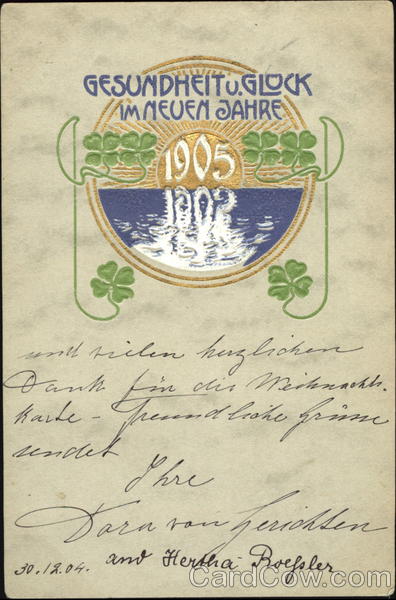 GESUNDHEIT U. GLÜCK
IM NEUEN JAHRE
1905
und vielen herzlichen
Dank für die Weihnachts-
karte - freundliche Grüsse
sendet
Ihre
Dora von Gerichten
30.12.04. and Hertha Roeßler
CardCow.com